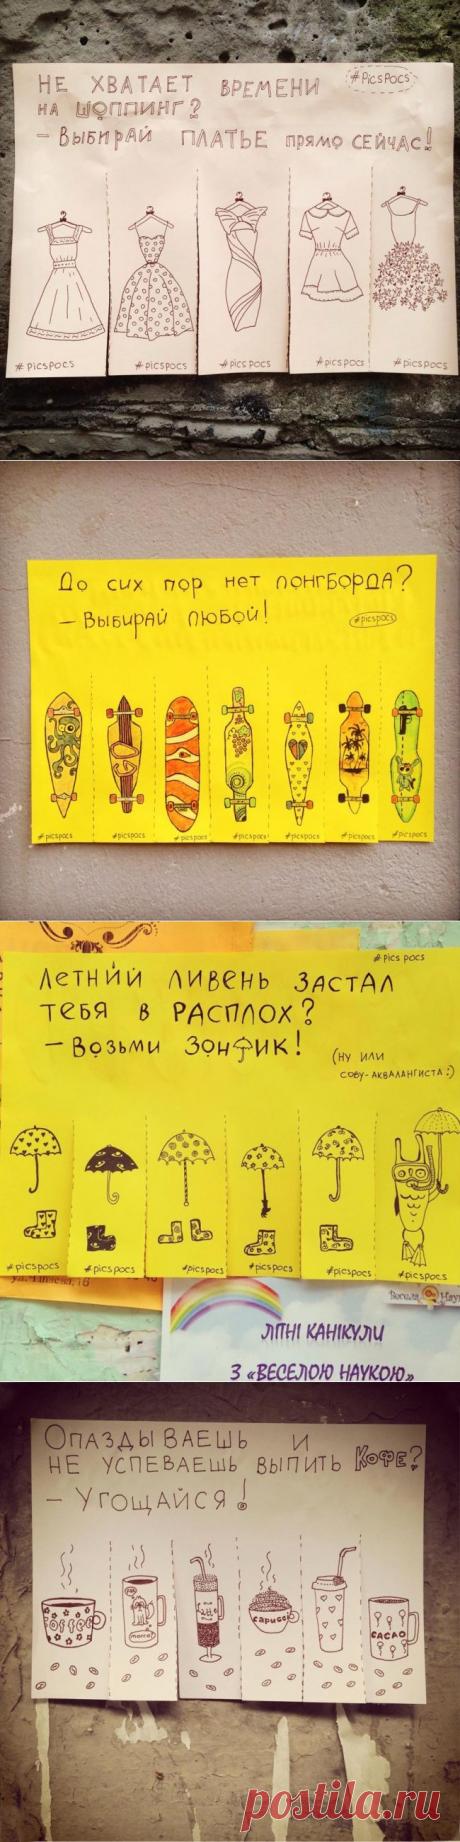 НЕ ХВАТАЕТ ВРЕМЕНИ
#PicsPocs
НА ШОППИНГ?
– ВЫБИРАЙ ПЛАТЬЕ ПРЯМО СЕЙЧАС!
#picspocs #picspocs #picspocs #picspocs #picspocs
До сих пор нет лонгборда?
– Выбирай любой!
#picspocs
#picspocs #picspocs #picspocs #picspocs #picspocs #picspocs #picspocs
#picspocs
ЛЕТНИЙ ЛИВЕНЬ ЗАСТАЛ
ТЕБЯ В РАСПЛОХ?
– Возьми ЗОНТИК!
(НУ ИЛИ
СОВУ-АКВАЛАНГИСТА:)
#picspocs #picspocs #picspocs #picspocs #picspocs #picspocs
ЛІТНІ КАНІКУЛИ
З «ВЕСЕЛОЮ НАУКОЮ»
ОПАЗДЫВАЕШЬ И
НЕ УСПЕВАЕШЬ ВЫПИТЬ КОФЕ?
– УГОЩАЙСЯ!
COFFEE
CACAO
postila.ru